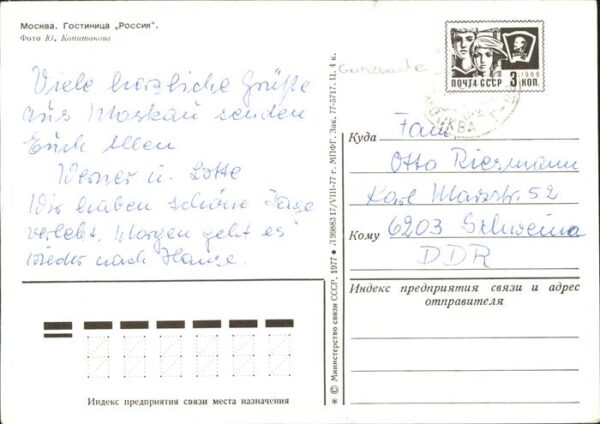 Москва. Гостиница „Россия".
Фото Ю. Капитанова
Viele herzliche Grüße
aus Moskau senden
Euch Allen
Werner u. Lotte
Wir haben schöne Tage
verlebt. Morgen geht es
wieder nach Hause.
Индекс предприятия связи места назначения
* © Министерство связи СССР. 1977 • Л 99883 17/VIII-77 г. МПФГ. Зак. 77-5717. Ц. 4 к.
Ganzsache
ПОЧТА СССР 3 КОП.
1966
МОСКВА
Куда
Fam.
Otto Riezmann
Karl Marxstr. 52
Кому
6203 Schweina
DDR
Индекс предприятия связи и адрес
отправителя